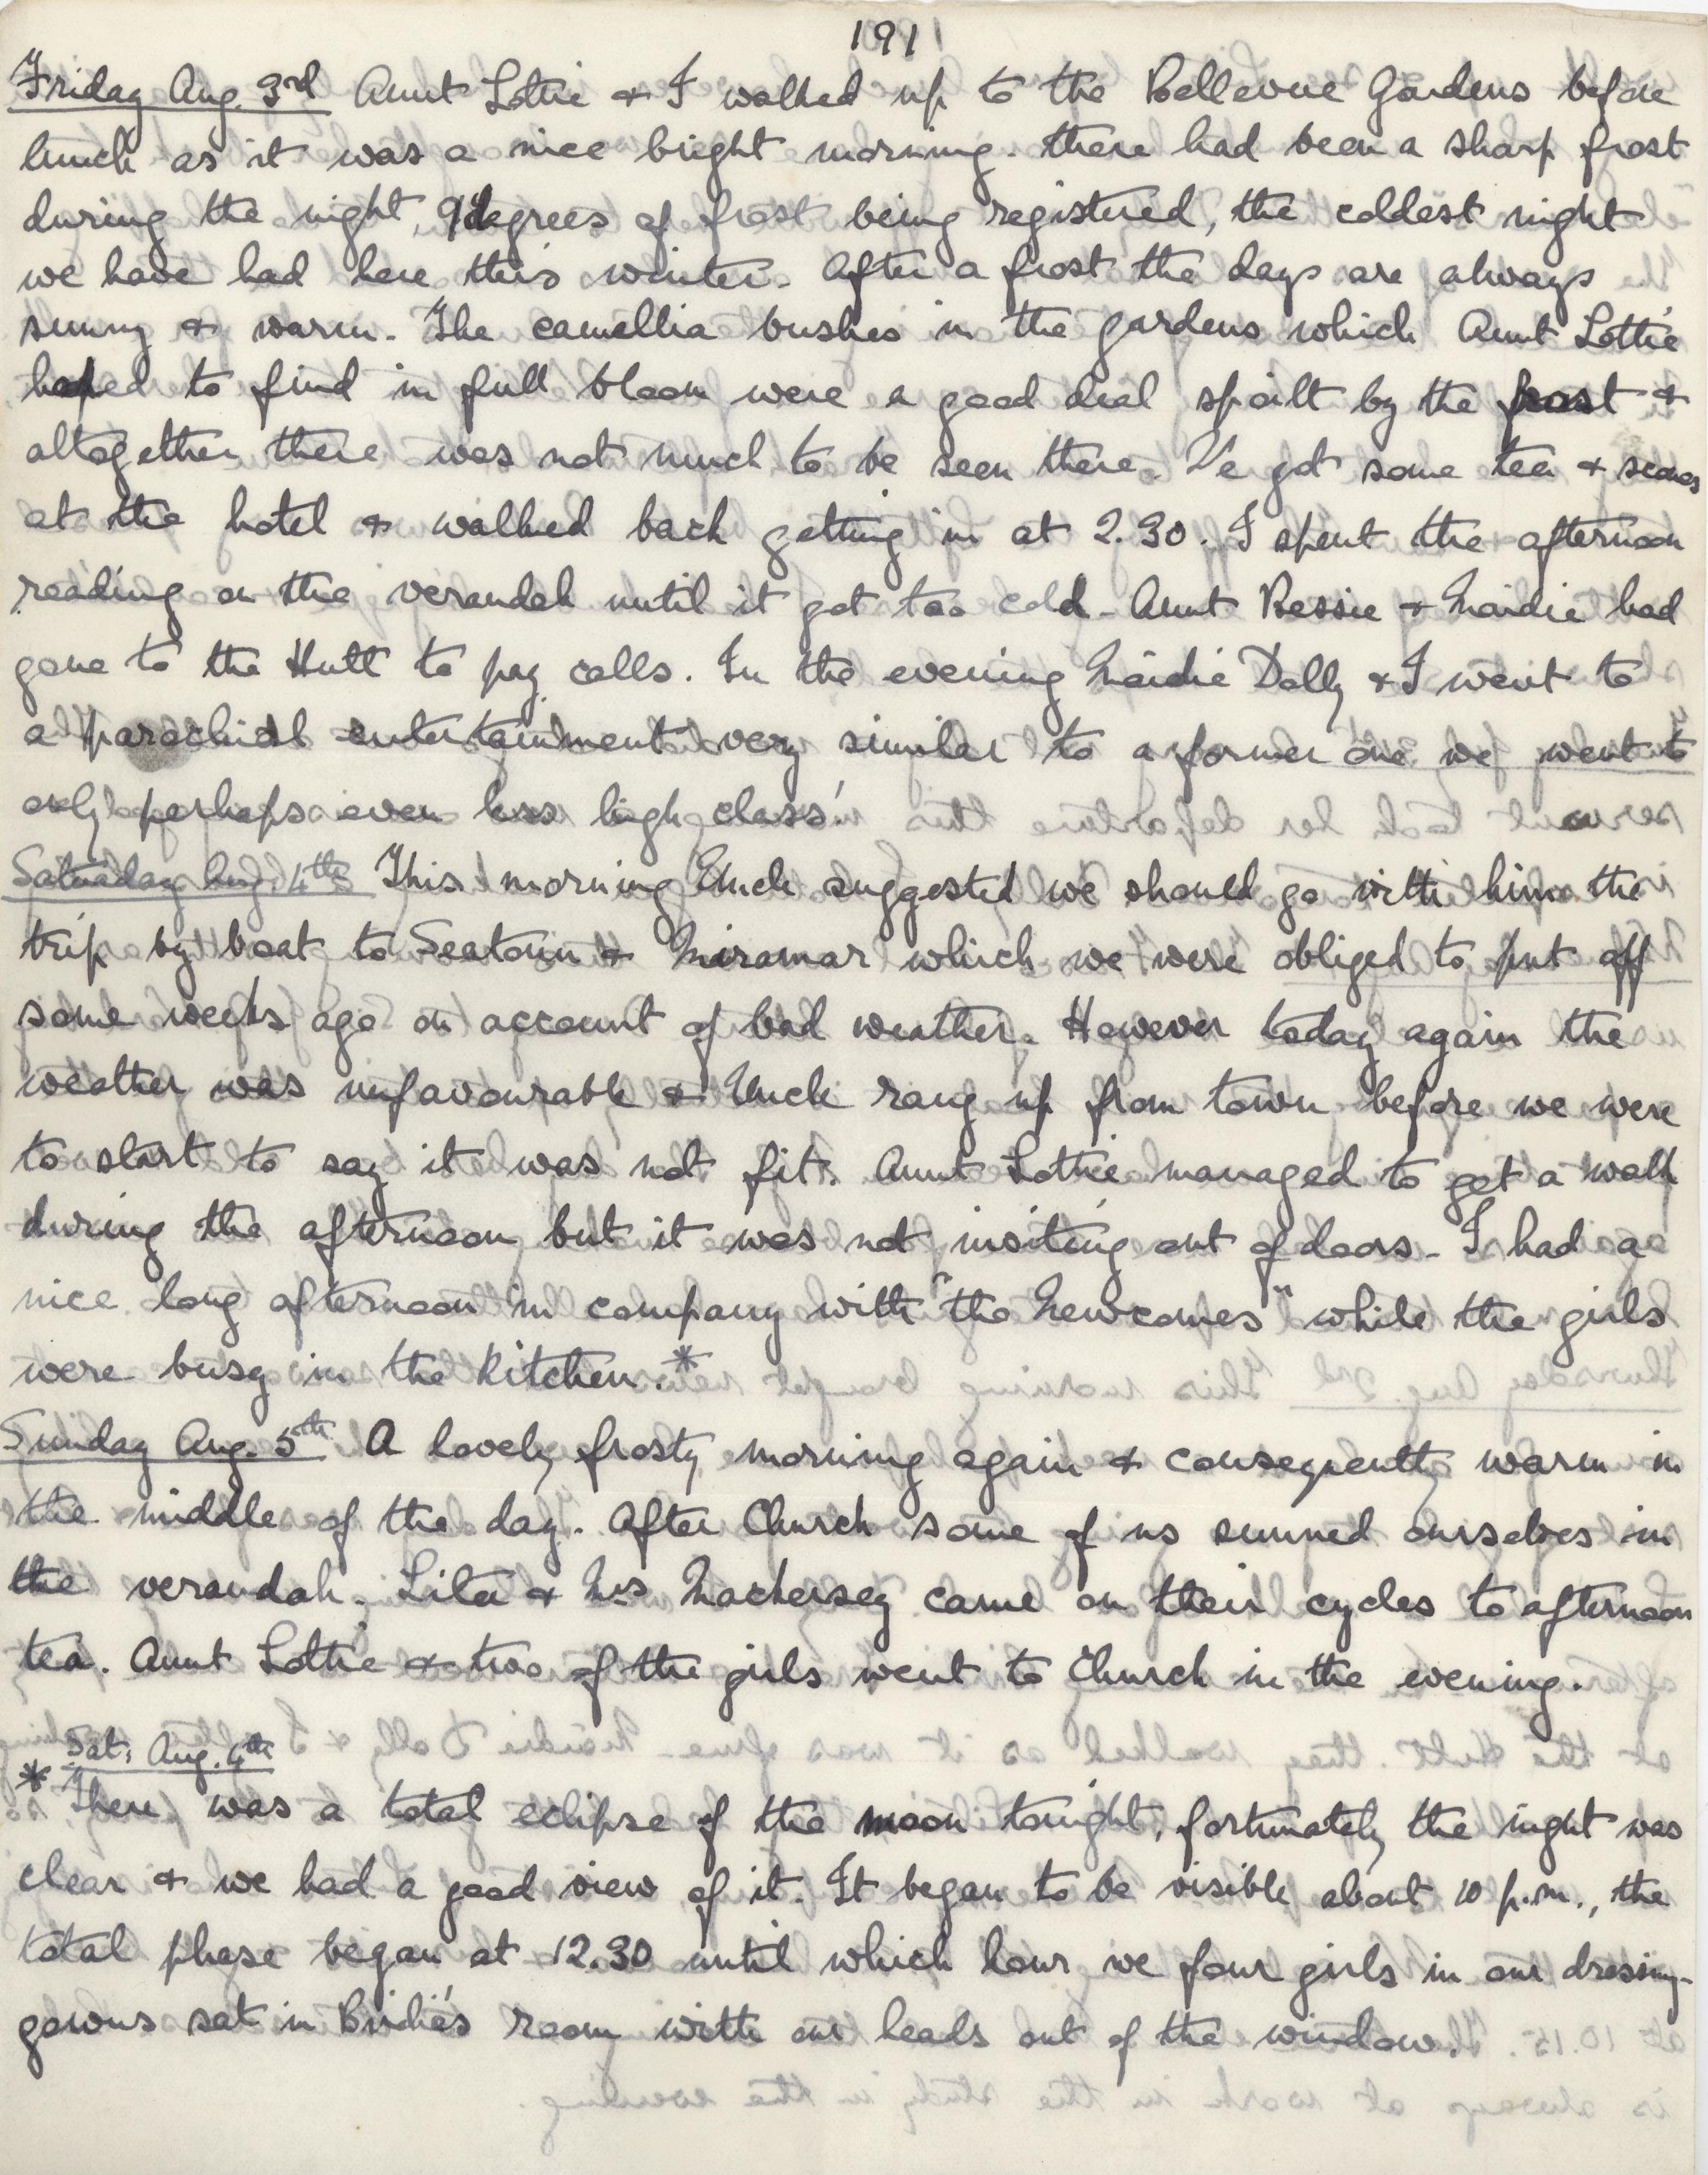 191
Friday Aug. 3rd Aunt Lottie & I walked up to the Bellevue Gardens before
lunch as it was a nice bright morning. There had been a sharp frost
during the night, 9 degrees of frost being registered, the coldest night
we have had here this winter. After a frost the days are always
sunny & warm. The camellia bushes in the gardens which Aunt Lottie
hoped to find in full bloom were a good deal spoilt by the frost &
altogether there was not much to be seen there. We got some tea & scones
at the hotel & walked back getting in at 2.30. I spent the afternoon
reading on the verandah until it got too cold. Aunt Bessie & Maidie had
gone to the Hutt to pay calls. In the evening Maidie Dolly & I went to
a parochial entertainment very similar to a former one we went to
only perhaps even less high class!
Saturday Aug. 4th This morning Uncle suggested we should go with him the
trip by boat to Seatoun & Miramar which we were obliged to put off
some weeks ago on account of bad weather. However today again the
weather was unfavourable & Uncle rang up from town before we were
to start to say it was not fit. Aunt Lottie managed to get a walk
during the afternoon but it was not inviting out of doors. I had a
nice long afternoon in company with "the Newcomes" while the girls
were busy in the kitchen.*
Sunday Aug. 5th A lovely frosty morning again & consequently warm in
the middle of the day. After Church some of us sunned ourselves in
the verandah. Lita & Mrs Mackersey came on their cycles to afternoon
tea. Aunt Lottie & two of the girls went to Church in the evening.
Sat: Aug. 4th
* There was a total eclipse of the moon tonight, fortunately the night was
clear & we had a good view of it. It began to be visible about 10 p.m., the
total phase began at 12.30 until which hour we four girls in our dressing-
gowns sat in Bridie's room with our heads out of the window.